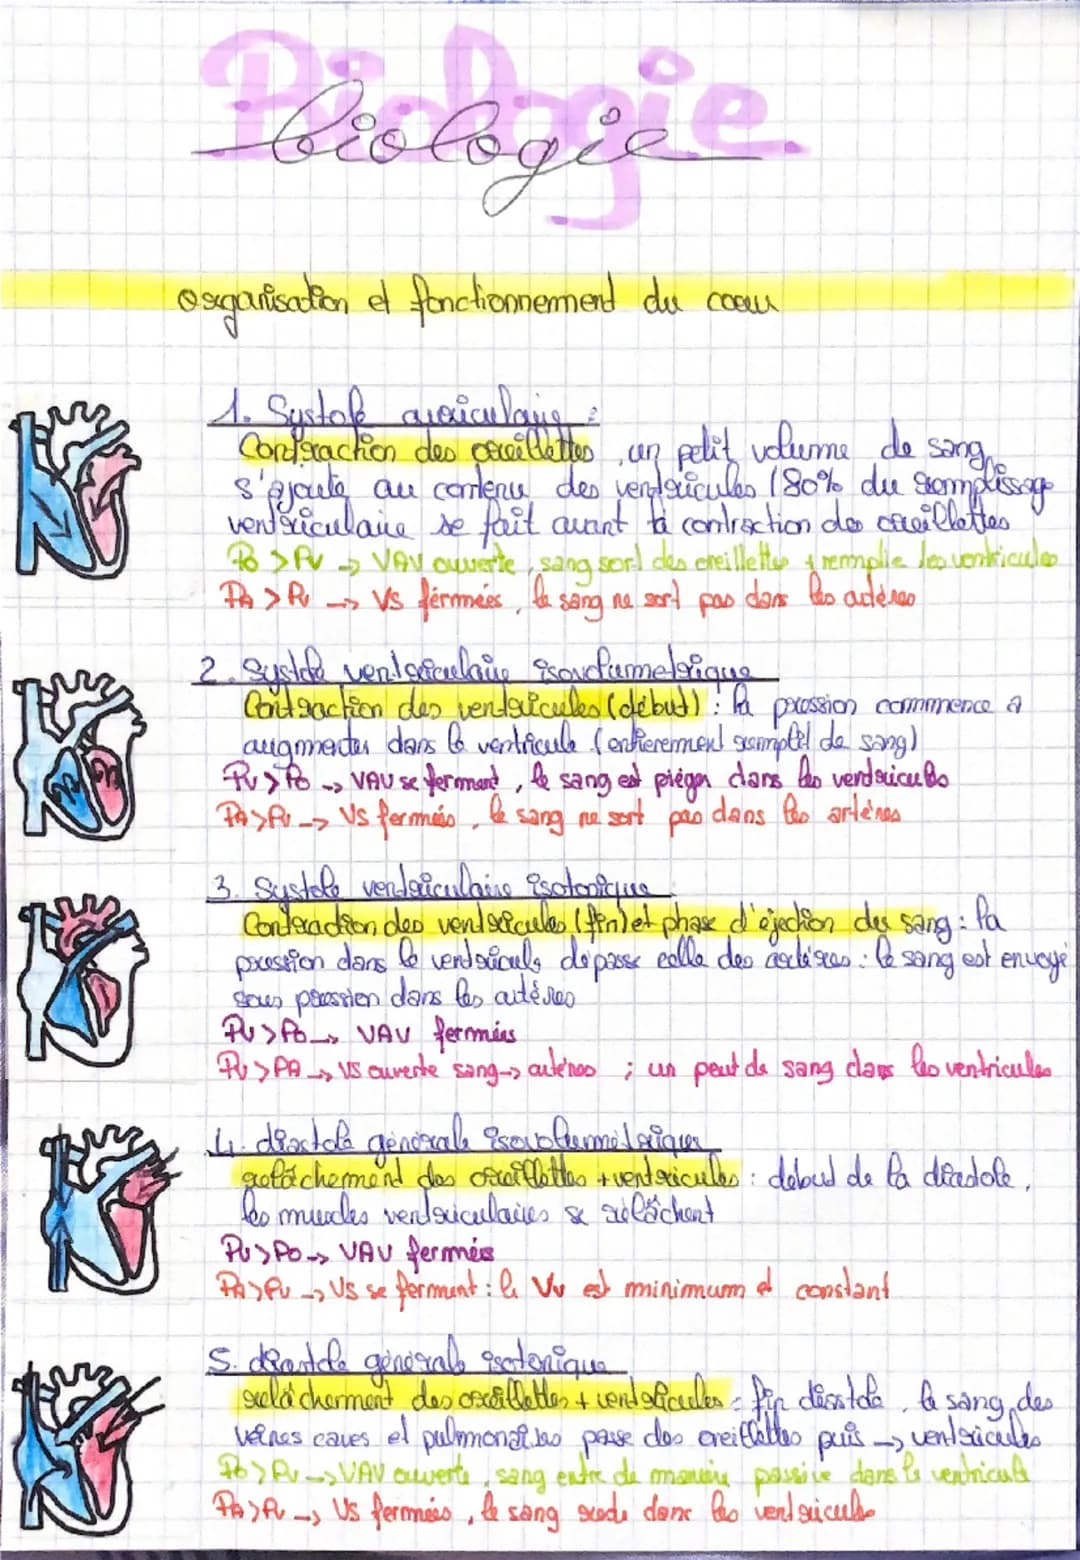 Biologie
biologie
Organisation et fonctionnement du coeur
1. Systole auriculaire :
Contraction des oreillettes, un petit volume de sang
s'ajoute au contenu des ventricules (80% du remplissage
ventriculaire se fait avant la contraction des oreillettes
Po > Pv → VAV ouverte, sang sort des oreillettes + remplie les ventricules
PA > Pv → VS férmmées, le sang ne sort pas dans les artères
2. Systole ventriculaire isovolumetrique
Contraction des ventricules (début) : la pression commmence à
augmenter dans le ventricule (entierement remplit de sang)
Pv > Po → VAV se ferment, le sang est piéger dans les ventricules
PA > Pv → VS fermées, le sang ne sort pas dans les artères
3. Systole ventriculaire isotonique
Contraction des ventricules (fin) et phase d'éjection du sang : la
pression dans le ventricule dépasse celle des artères : le sang est envoyé
sous pression dans les artères
Pv > Po → VAV fermées
Pv > PA → VS ouverte sang → artères ; un peut de sang dans les ventricules
4. diastole générale isovolumétrique
relâchement des oreillettes + ventricules : debut de la diastole,
les muscles ventriculaires se relâchent
Pv > Po → VAV fermées
PA > Pv → VS se ferment : le Vv est minimum et constant
5. diastole générale isotonique
relâchement des oreillettes + ventricules = fin diastole, le sang des
veines caves et pulmonaires passe des oreillettes puis → ventricules
Po > Pv → VAV ouverte, sang entre de manière passive dans le ventricule
PA > Pv → VS fermées, le sang reste dans les ventricules